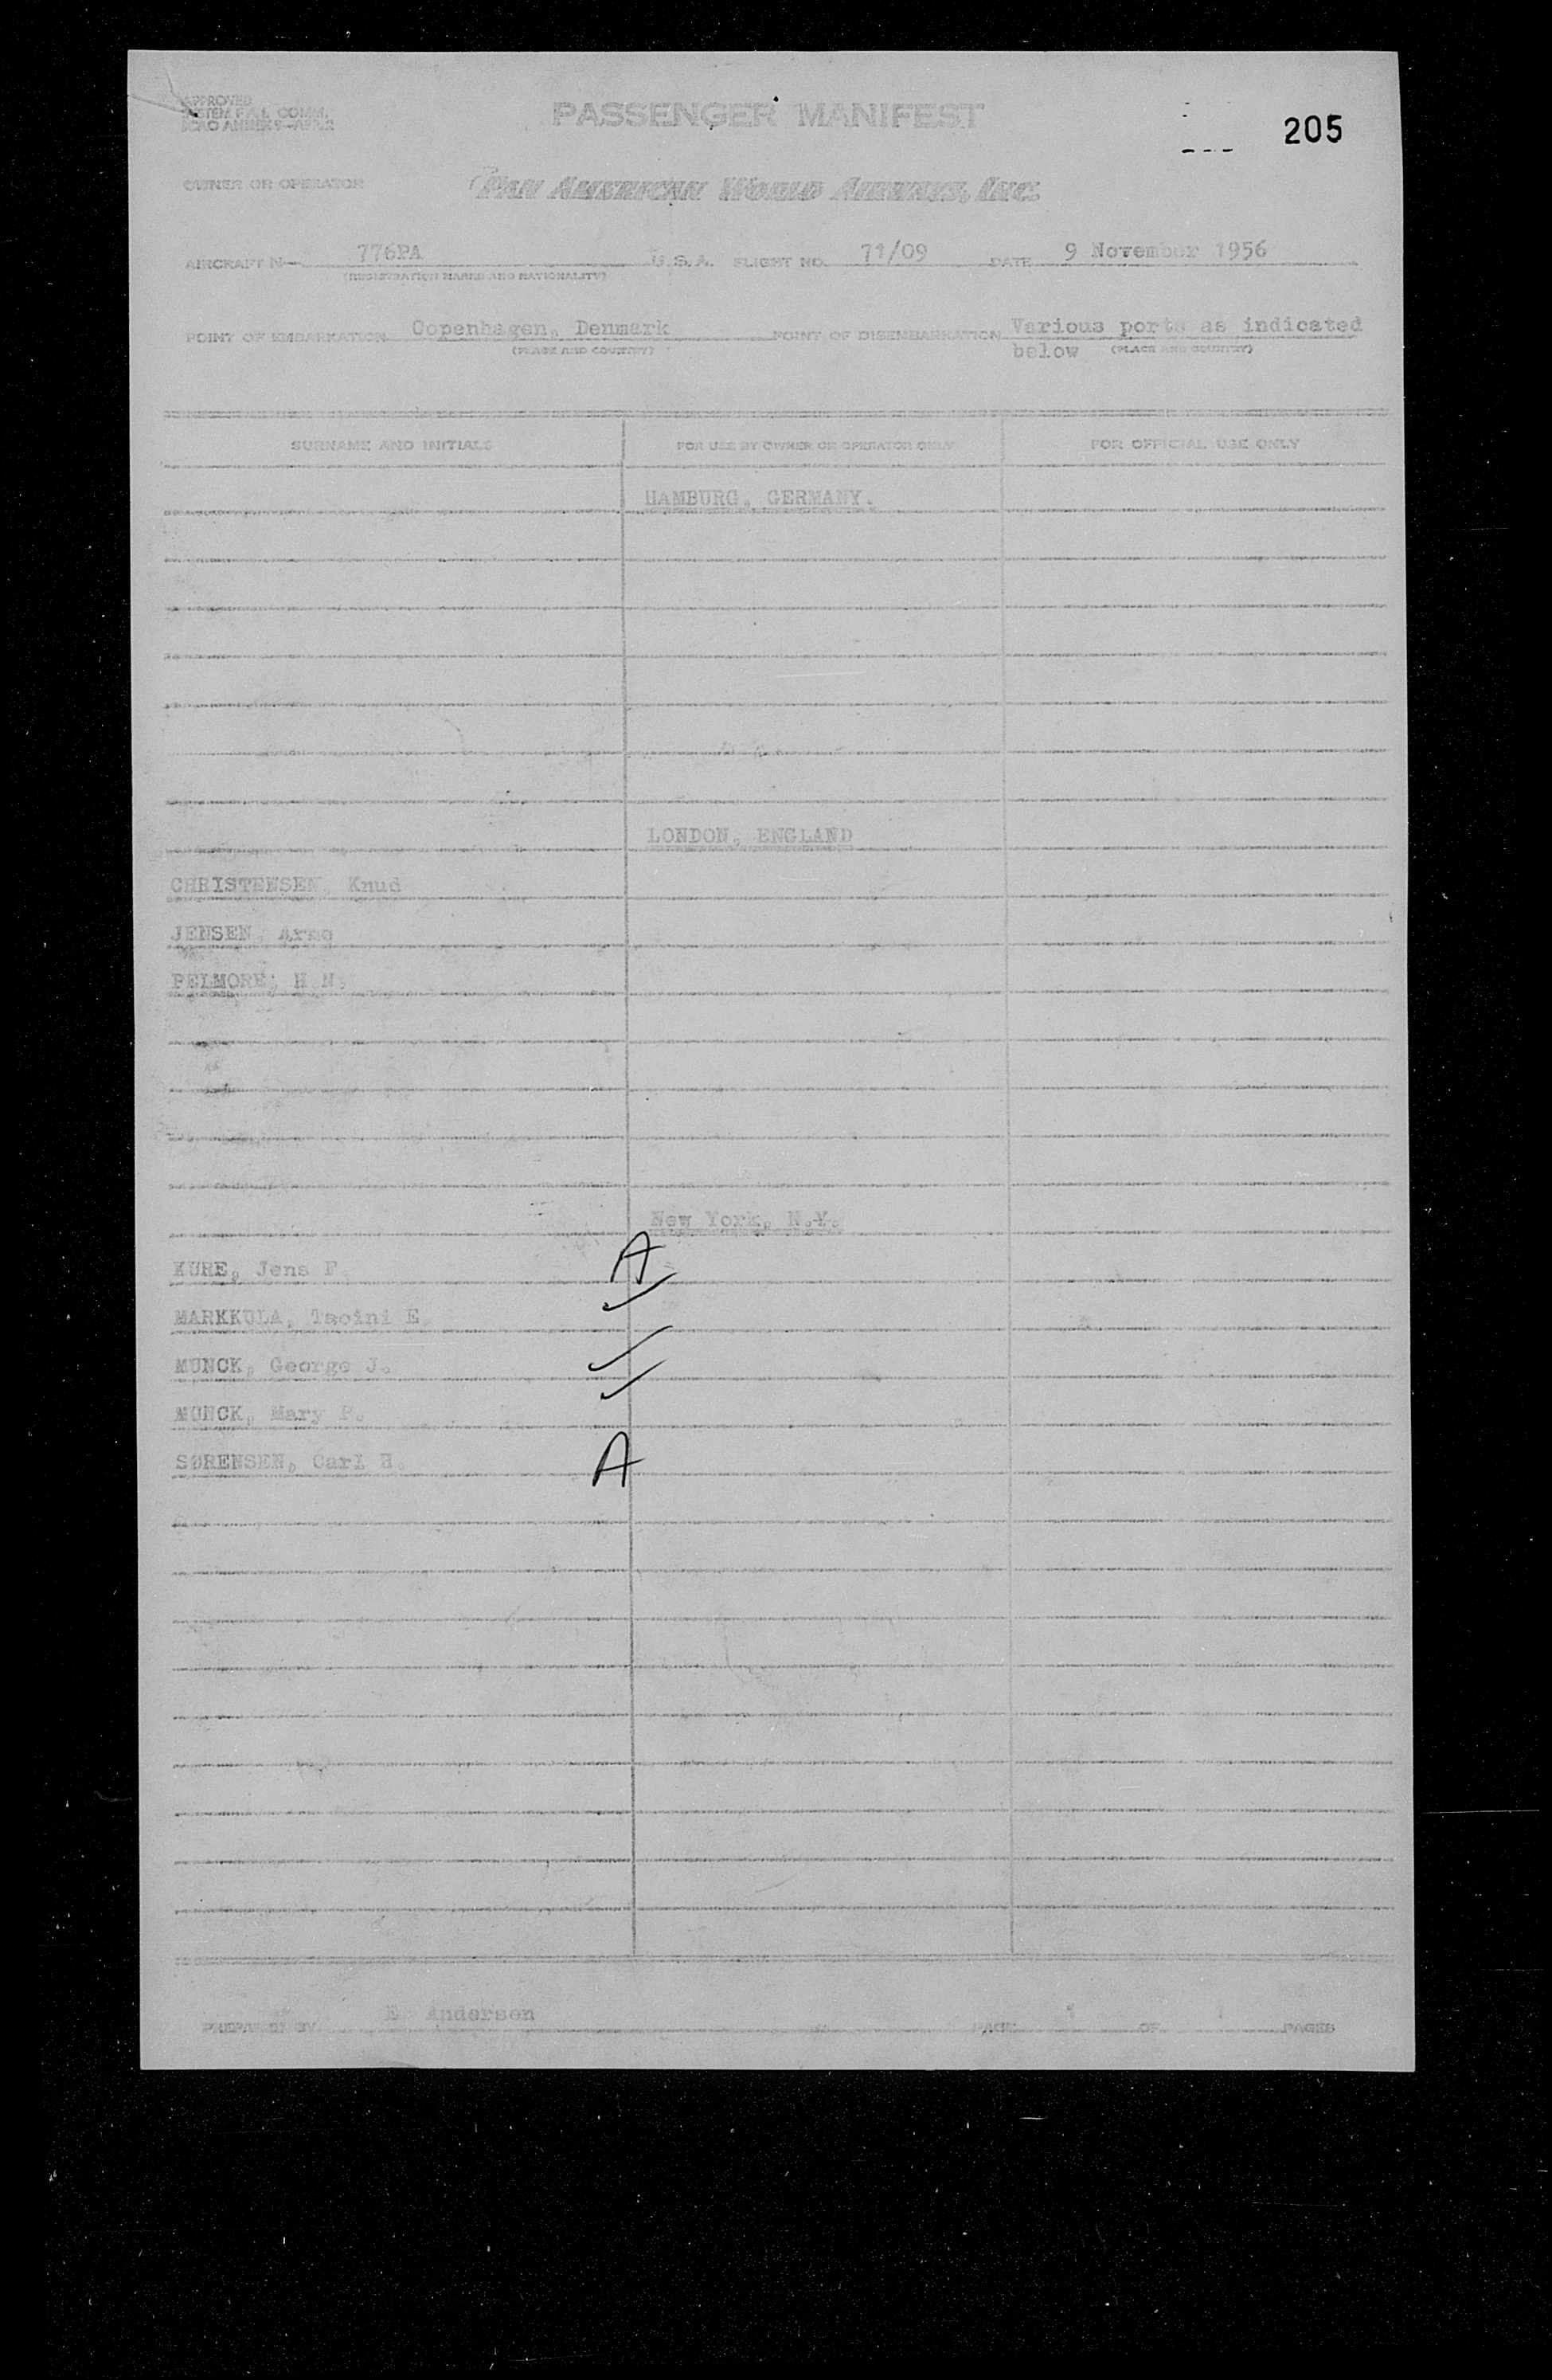 APPROVED
SYSTEM F.A.L. COMM.
ICAO ANNEX 9—APP. 2
PASSENGER MANIFEST
205
OWNER OR OPERATOR
PAN AMERICAN WORLD AIRWAYS, INC.
AIRCRAFT N— 776PA U.S.A. FLIGHT NO. 71/09 DATE 9 November 1956
(REGISTRATION MARKS AND NATIONALITY)
POINT OF EMBARKATION Copenhagen, Denmark POINT OF DISEMBARKATION Various ports as indicated
(PLACE AND COUNTRY) below (PLACE AND COUNTRY)
SURNAME AND INITIALS FOR USE BY OWNER OR OPERATOR ONLY FOR OFFICIAL USE ONLY
HAMBURG, GERMANY.
LONDON, ENGLAND
CHRISTENSEN, Knud
JENSEN,
PELMORE, H.N.
New York, N.Y.
KURE, Jens F. A
MARKKULA, E.
MUNCK, George J.
MUNCK, Mary P.
SØRENSEN, Carl H. A
PREPARED BY E. Andersen PAGE 1 OF PAGES